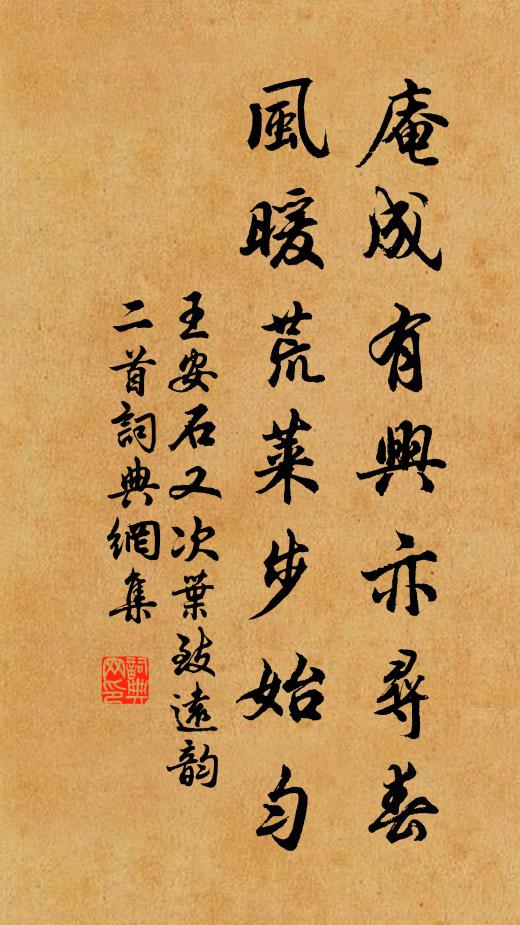 庵成有興亦尋春
風暖荒萊步始勻
王安石又次葉致遠韵
二首詞典網集
詞典
网印